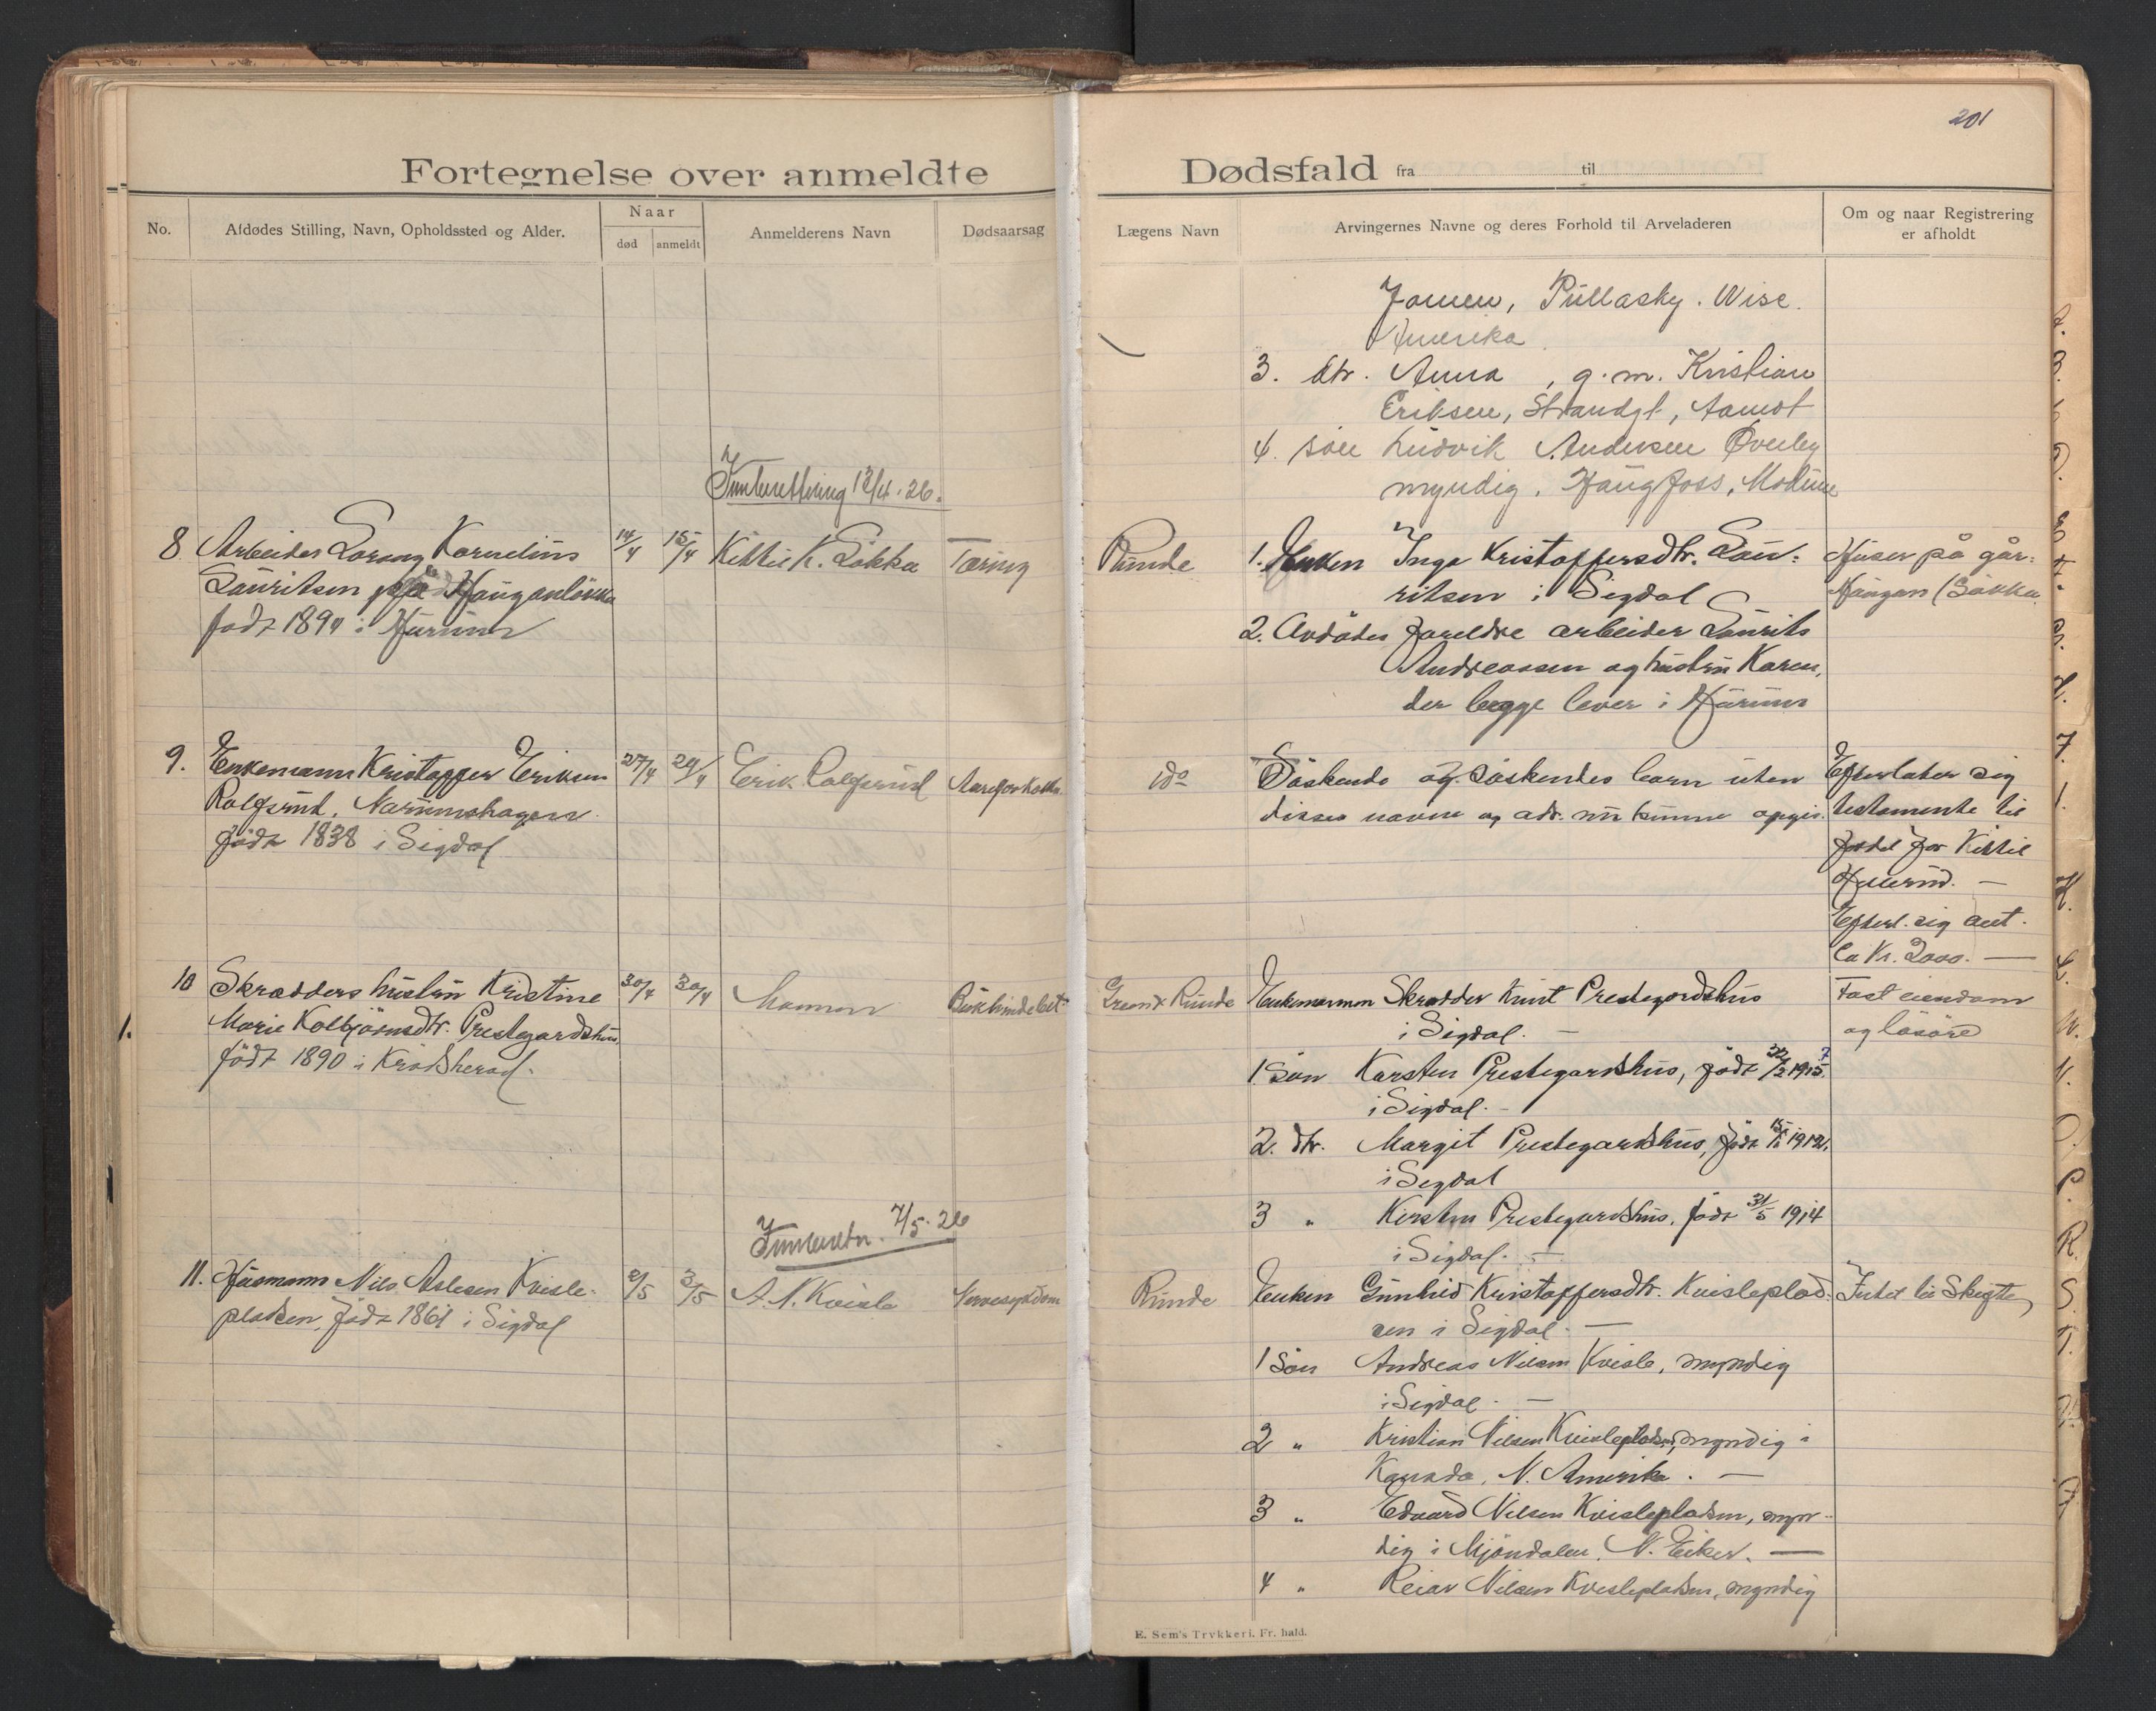 201
Fortegnelse over anmeldte
Dødsfald fra til
No.
Afdødes Stilling, Navn, Opholdssted og Alder.
Naar
død
anmeldt
Anmelderens Navn
Dødsaarsag
Lægens Navn
Arvingernes Navne og deres Forhold til Arveladeren
Om og naar Registrering
er afholdt
Pullasky. Wisc.
Amerika.
3. dtr. Anna, g. m. Kristian
Eriksen, Strandgt, Aamot
4. søn Ludvik Andersen Øverby
myndig, Haugfoss, Modum
Innberetning 13/4.26.
8 Arbeider Lorang Kornelius
Lauritsen Hauganløkka
født 1894 i Hurum
14/4
15/4
Kittil K. Løkka
Tæring
Runde
1. Enken Inga Kristoffersdtr. Lau-
ritsen i Sigdal
2. Avdødes foreldre arbeider Laurits
Andreassen og hustru Karen,
der begge lever i Hurum
Huser på går-
Haugan (Løkka
9. Enkemann Kristoffer Eriksen
Rolfsrud, Narumshagen
født 1838 i Sigdal
27/4
29/4
Erik Rolfsrud
Aareforkalkn.
ido
Søskende og søskendes barn uten
disses navne og adr. nu kunne opgis.
Efterlater sig
testamente til
fordel for Kittil
Efterl. sig ant.
ca Kr. 2000. —
10 Skrædders hustru Kristine
Marie Kolbjørnsdtr. Prestegardshus
født 1890 i Krødsherad.
30/4
30/4
Mannen
Bukhindebet.
Runde
Enkemannen Skrædder Knut Prestegardshus
i Sigdal. —
1 Søn Karsten Prestegardshus, født
i Sigdal. —
2. dtr. Margit Prestegardshus, født
i Sigdal
3 " Kirsten Prestegardshus, født 31/5 1914
i Sigdal. —
Fast eiendom
og løsøre
Innberetn. 7/5. 26
11. Husmann Nils Aslesen Kvisle-
pladsen, født 1861 i Sigdal
2/5
3/5
A. N. Kvisle
Nervesygdom
Runde
Enken Gunhild Kristoffersdtr. Kvisleplad-
sen i Sigdal. —
1 Søn Andreas Nilsen Kvisle, myndig
i Sigdal. —
2 " Kristian Nilsen Kvislepladsen, myndig i
Kanada, N. Amerika. —
3 " Edvard Nilsen Kvislepladsen, myn-
dig i Mjøndalen, N. Eiker. —
4 " Reiar Nilsen Kvislepladsen, myndig
Intet til Skifte
E. Sem's Trykkeri, Fr. hald.